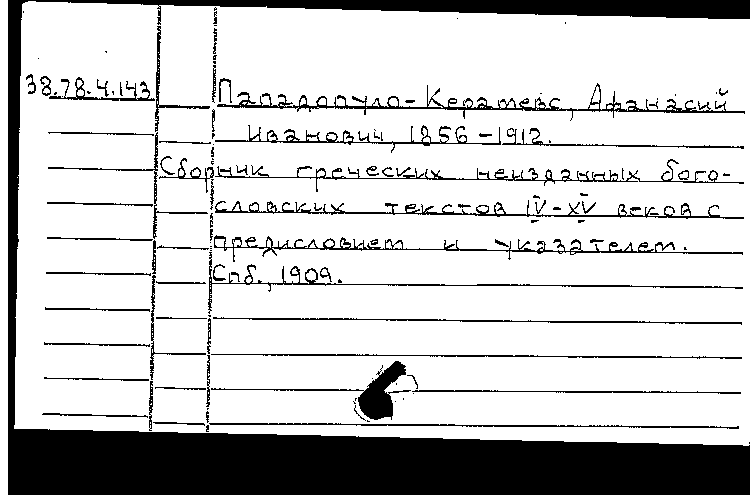 38.78.4.143 Пападопуло-Керамевс, Афанасий
Иванович, 1856-1912.
Сборник греческих неизданных бого-
словских текстов IV-XV веков с
предисловием и указателем.
Спб., 1909.